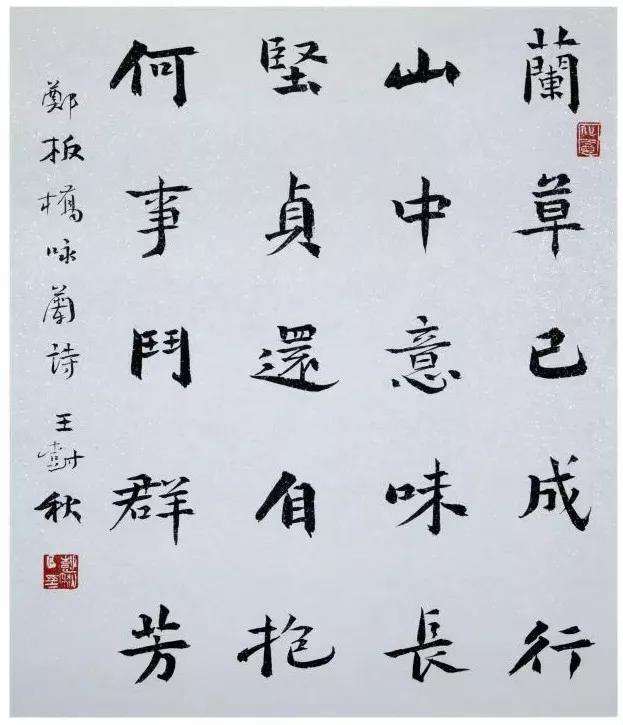 蘭草已成行
山中意味長
堅貞還自抱
何事鬥群芳
鄭板橋咏蘭詩 王尌秋